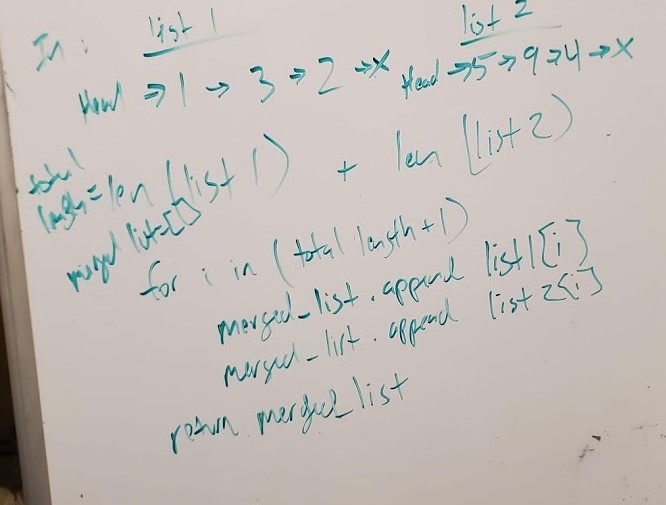 In: list 1 list 2
Head → 1 → 3 → 2 → X Head → 5 → 9 → 4 → X
total
length = len (list 1) + len (list 2)
merged list=[]
for i in (total length + 1)
merged_list . append list1[i]
merged_list . append list2[i]
return merged_list